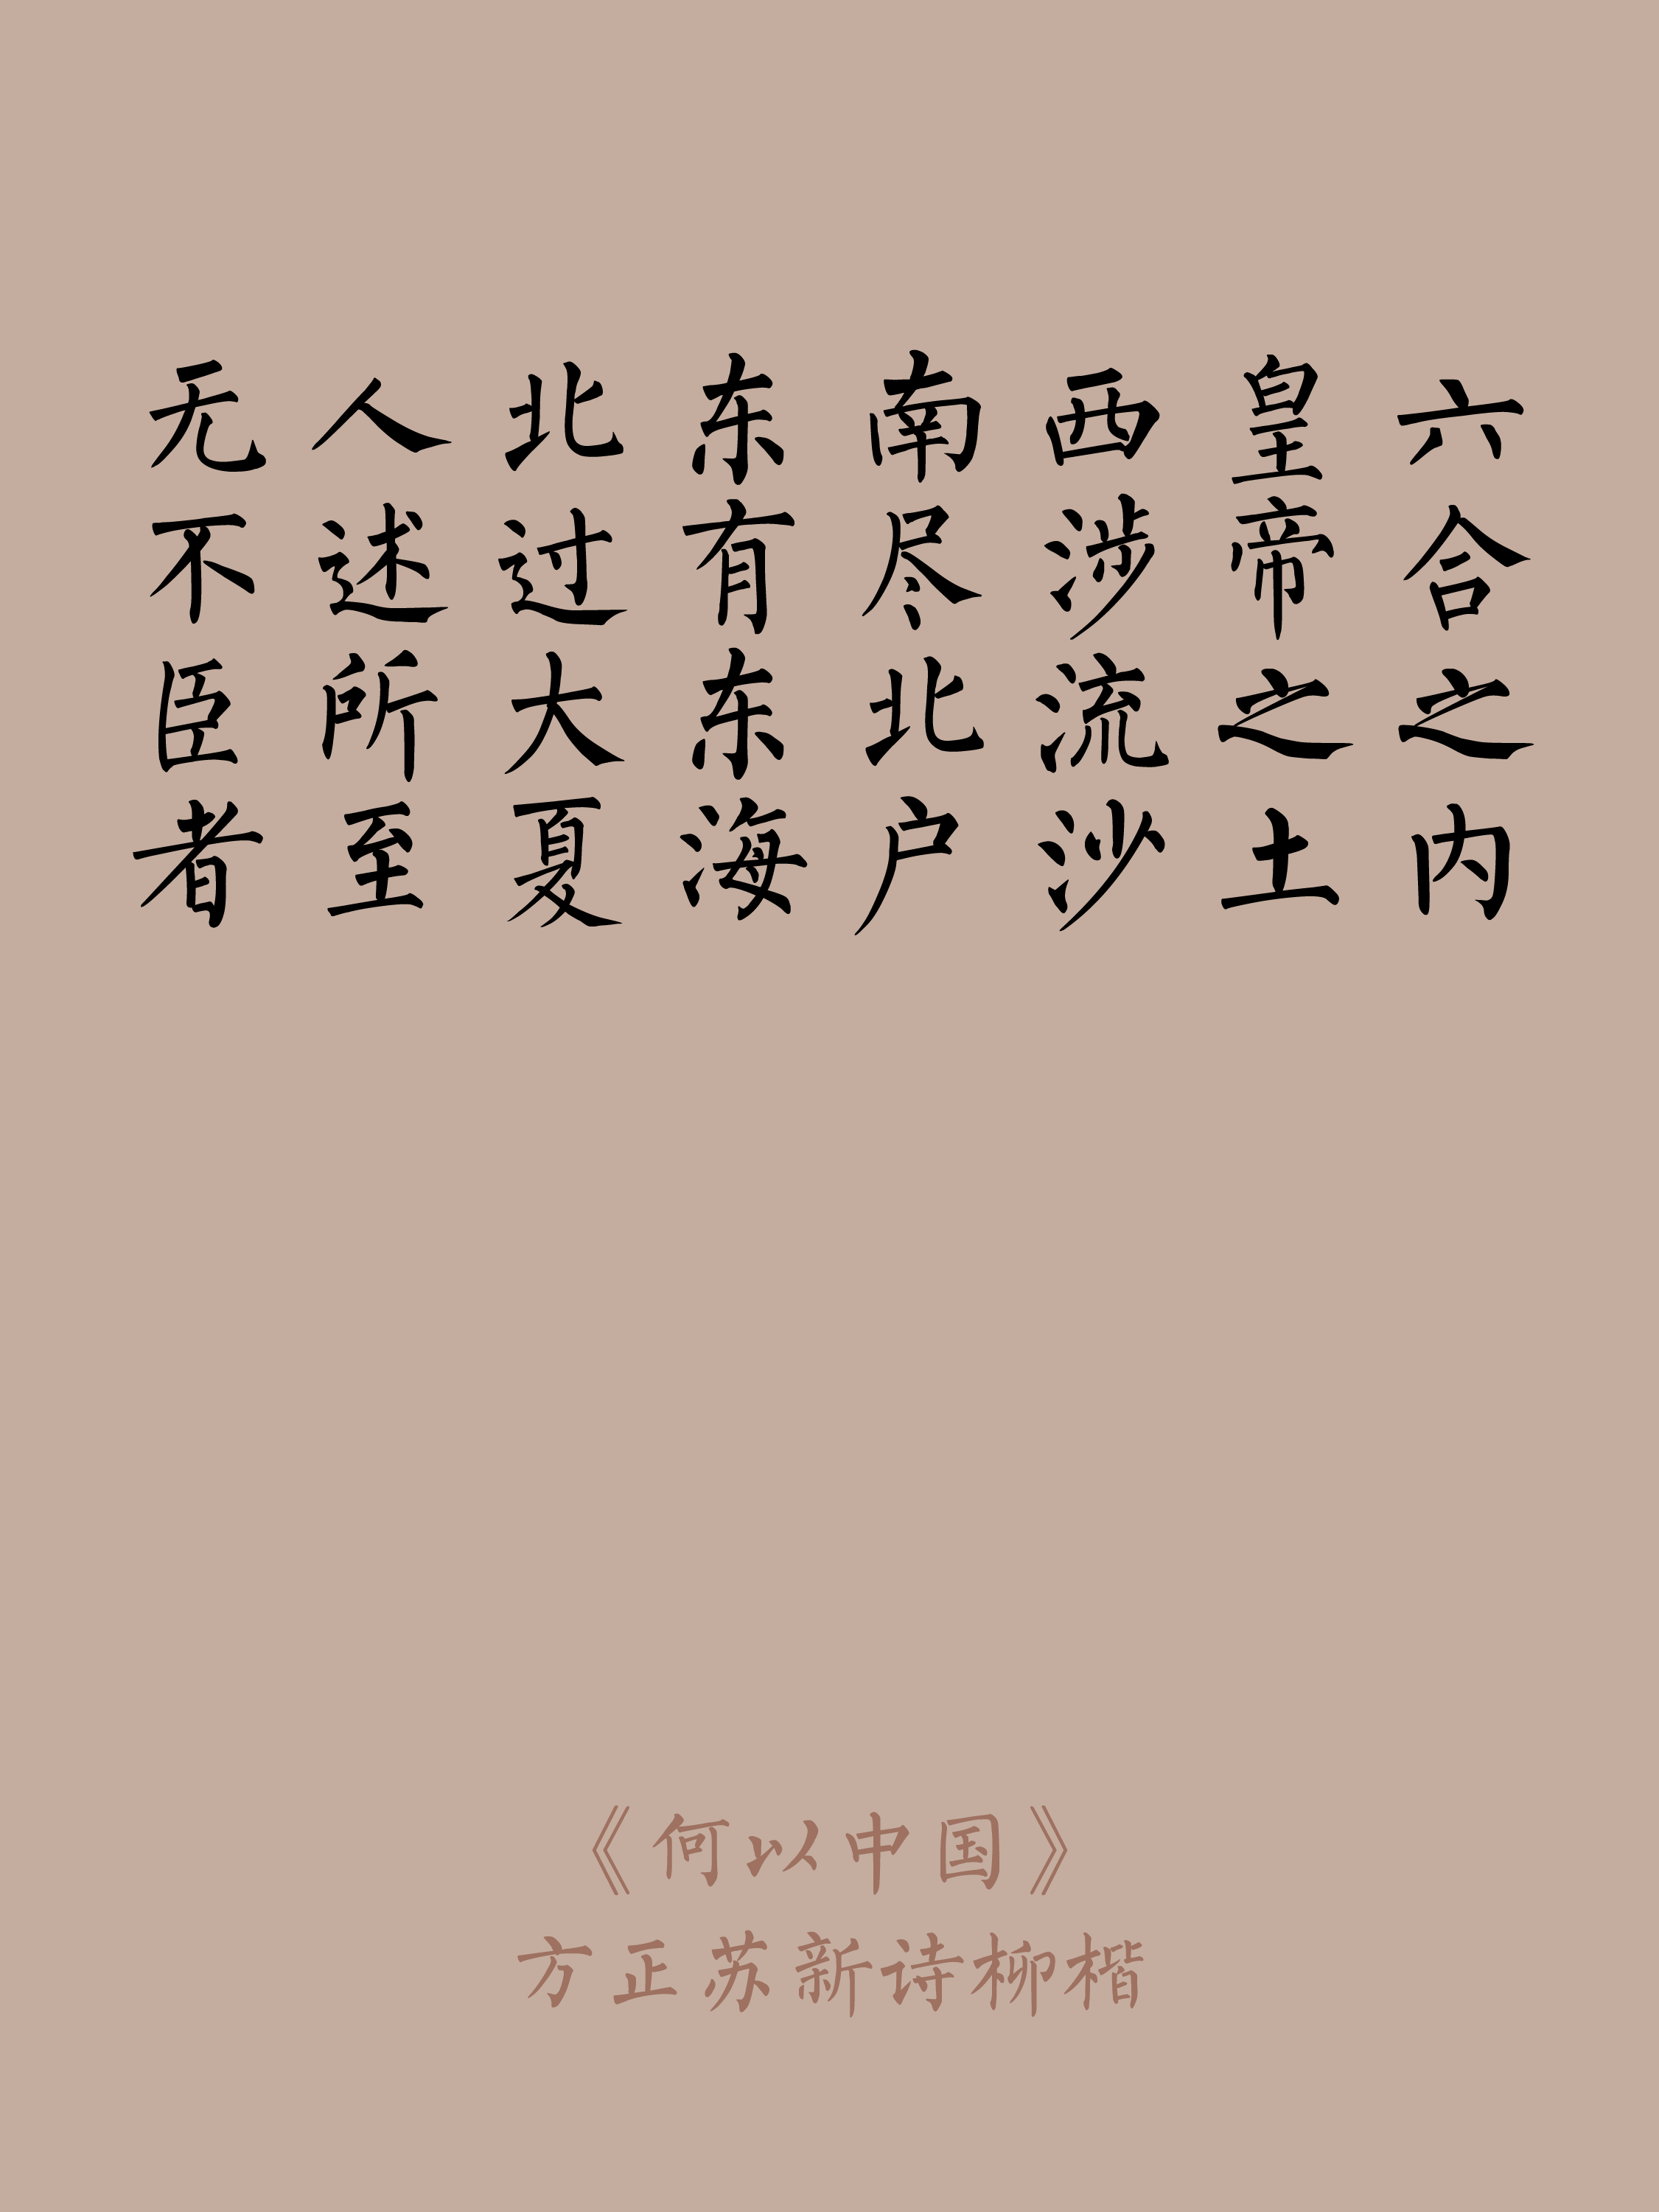 六合之内
皇帝之土
西涉流沙
南尽北户
东有东海
北过大夏
人迹所至
无不臣者
《何以中国》
方正苏新诗柳楷